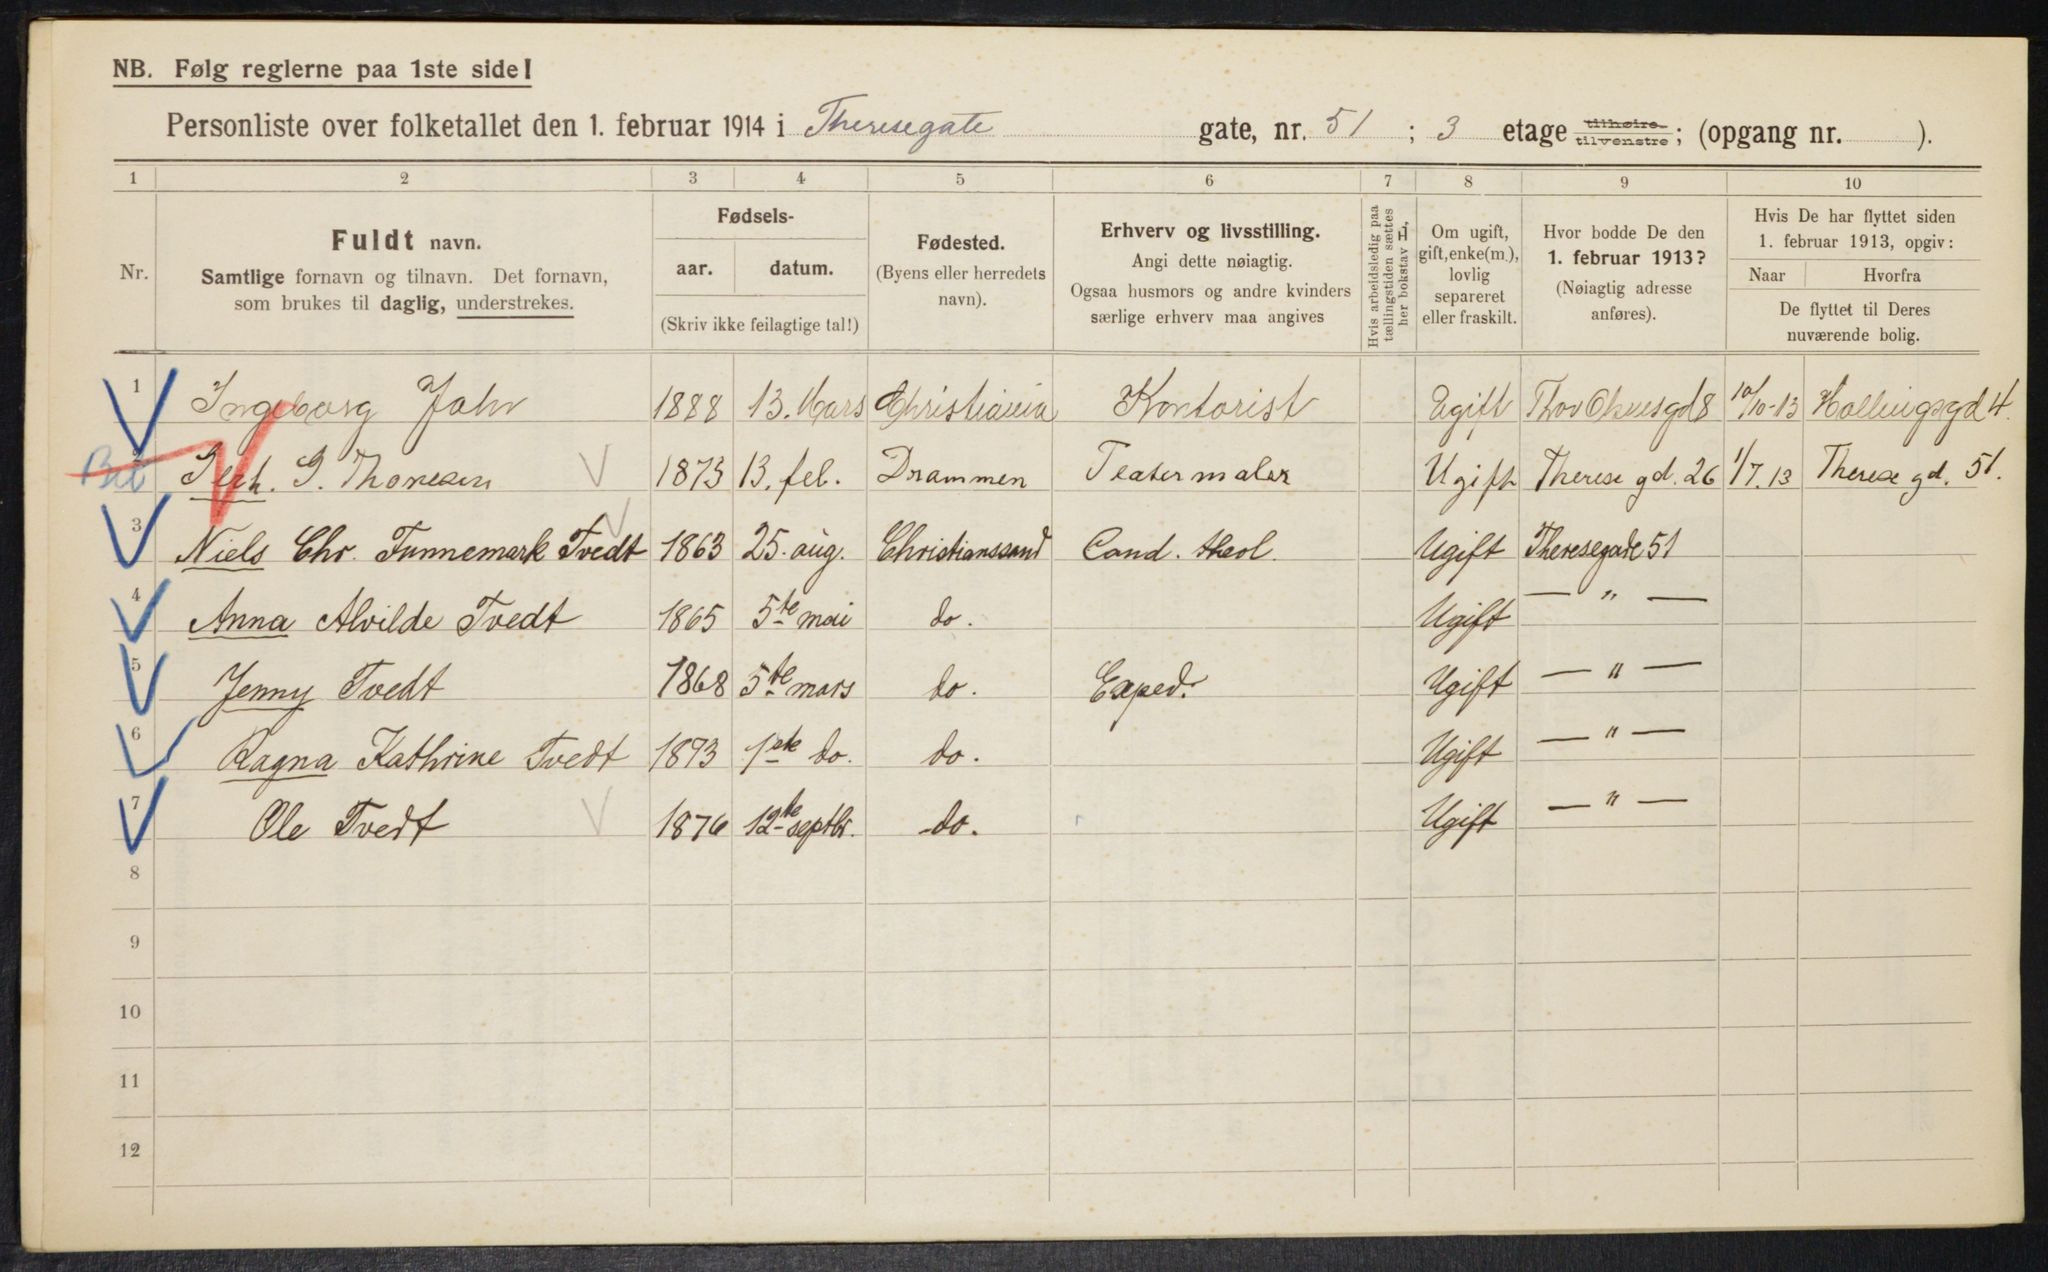 NB. Følg reglerne paa 1ste side!
Personliste over folketallet den 1. februar 1914 i Theresegate gate, nr. 51 ; 3 etage tilhøire tilvenstre; (opgang nr. ).
1 2 3 4 5 6 7 8 9 10
Nr.
Fuldt navn.
Samtlige fornavn og tilnavn. Det fornavn,
som brukes til daglig, understrekes.
Fødsels-
aar. datum.
(Skriv ikke feilagtige tal!)
Fødested.
(Byens eller herredets
navn).
Erhverv og livsstilling.
Angi dette nøiagtig.
Ogsaa husmors og andre kvinders
særlige erhverv maa angives
Hvis arbeidsledig paa
tællingstiden sættes
her bokstav L,
Om ugift,
gift, enke(m.),
lovlig
separeret
eller fraskilt.
Hvor bodde De den
1. februar 1913?
(Nøiagtig adresse
anføres).
Hvis De har flyttet siden
1. februar 1913, opgiv:
Naar Hvorfra
De flyttet til Deres
nuværende bolig.
1 Ingeborg Jahr 1888 13. Mars Christiania Kontorist Ugift 10/10-13
2 1873 13. feb. Drammen Teatermaler Ugift Therese gd. 26 1/7. 13 Therese gd. 51.
3 Niels Chr. Tunnemark Tvedt 1863 25. aug. Christianssand Cand. theol. Ugift Theresegade 51
4 Anna Alvilde Tvedt 1865 5te mai do. Ugift — " —
5 Jenny Tvedt 1868 5te mars do. Exped. Ugift — " —
6 Ragna Kathrine Tvedt 1873 1ste do. do. Ugift — " —
7 Ole Tvedt 1876 12te septbr. do. Ugift — " —
8
9
10
11
12